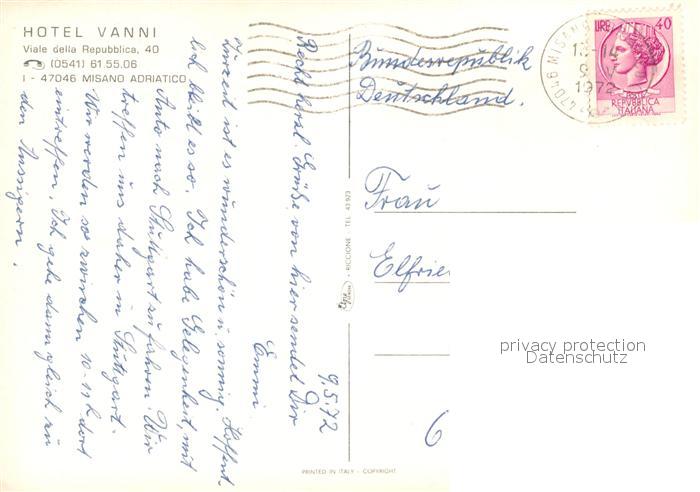 HOTEL VANNI
Viale della Repubblica, 40
(0541) 61.55.06
I - 47046 MISANO ADRIATICO
9.5.72
Recht herzl. Grüße von hier sendet Dir
Emmi.
Zurzeit ist es wunderschön u. sonnig. Hoffent-
lich bleibt es so. Ich habe Gelegenheit, mit
Auto nach Stuttgart zu fahren. Wir
treffen uns daher in Stuttgart.
Wir werden so zwischen 10-11h dort
eintreffen. Ich gehe dann gleich zu
den Anzeigern.
RICCIONE - TEL. 43923
PRINTED IN ITALY - COPYRIGHT
Bundesrepublik
Deutschland.
Frau
Elfrie
6
47046 MISANO
1972
LIRE 40
POSTE
REPVBBLICA
ITALIANA
privacy protection
Datenschutz